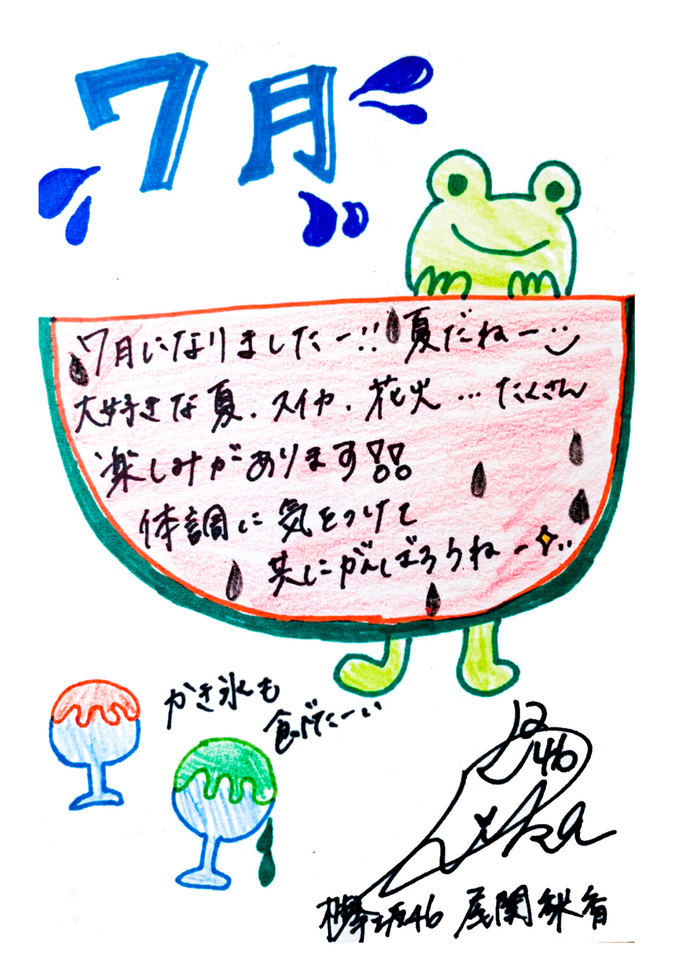 7月
7月になりましたー!! 夏だねー
大好きな夏．スイカ．花火…たくさん
楽しみがあります!!
体調に気をつけて
共にがんばろうねー
かき氷も
食べたーい
46
欅坂46 尾関梨香